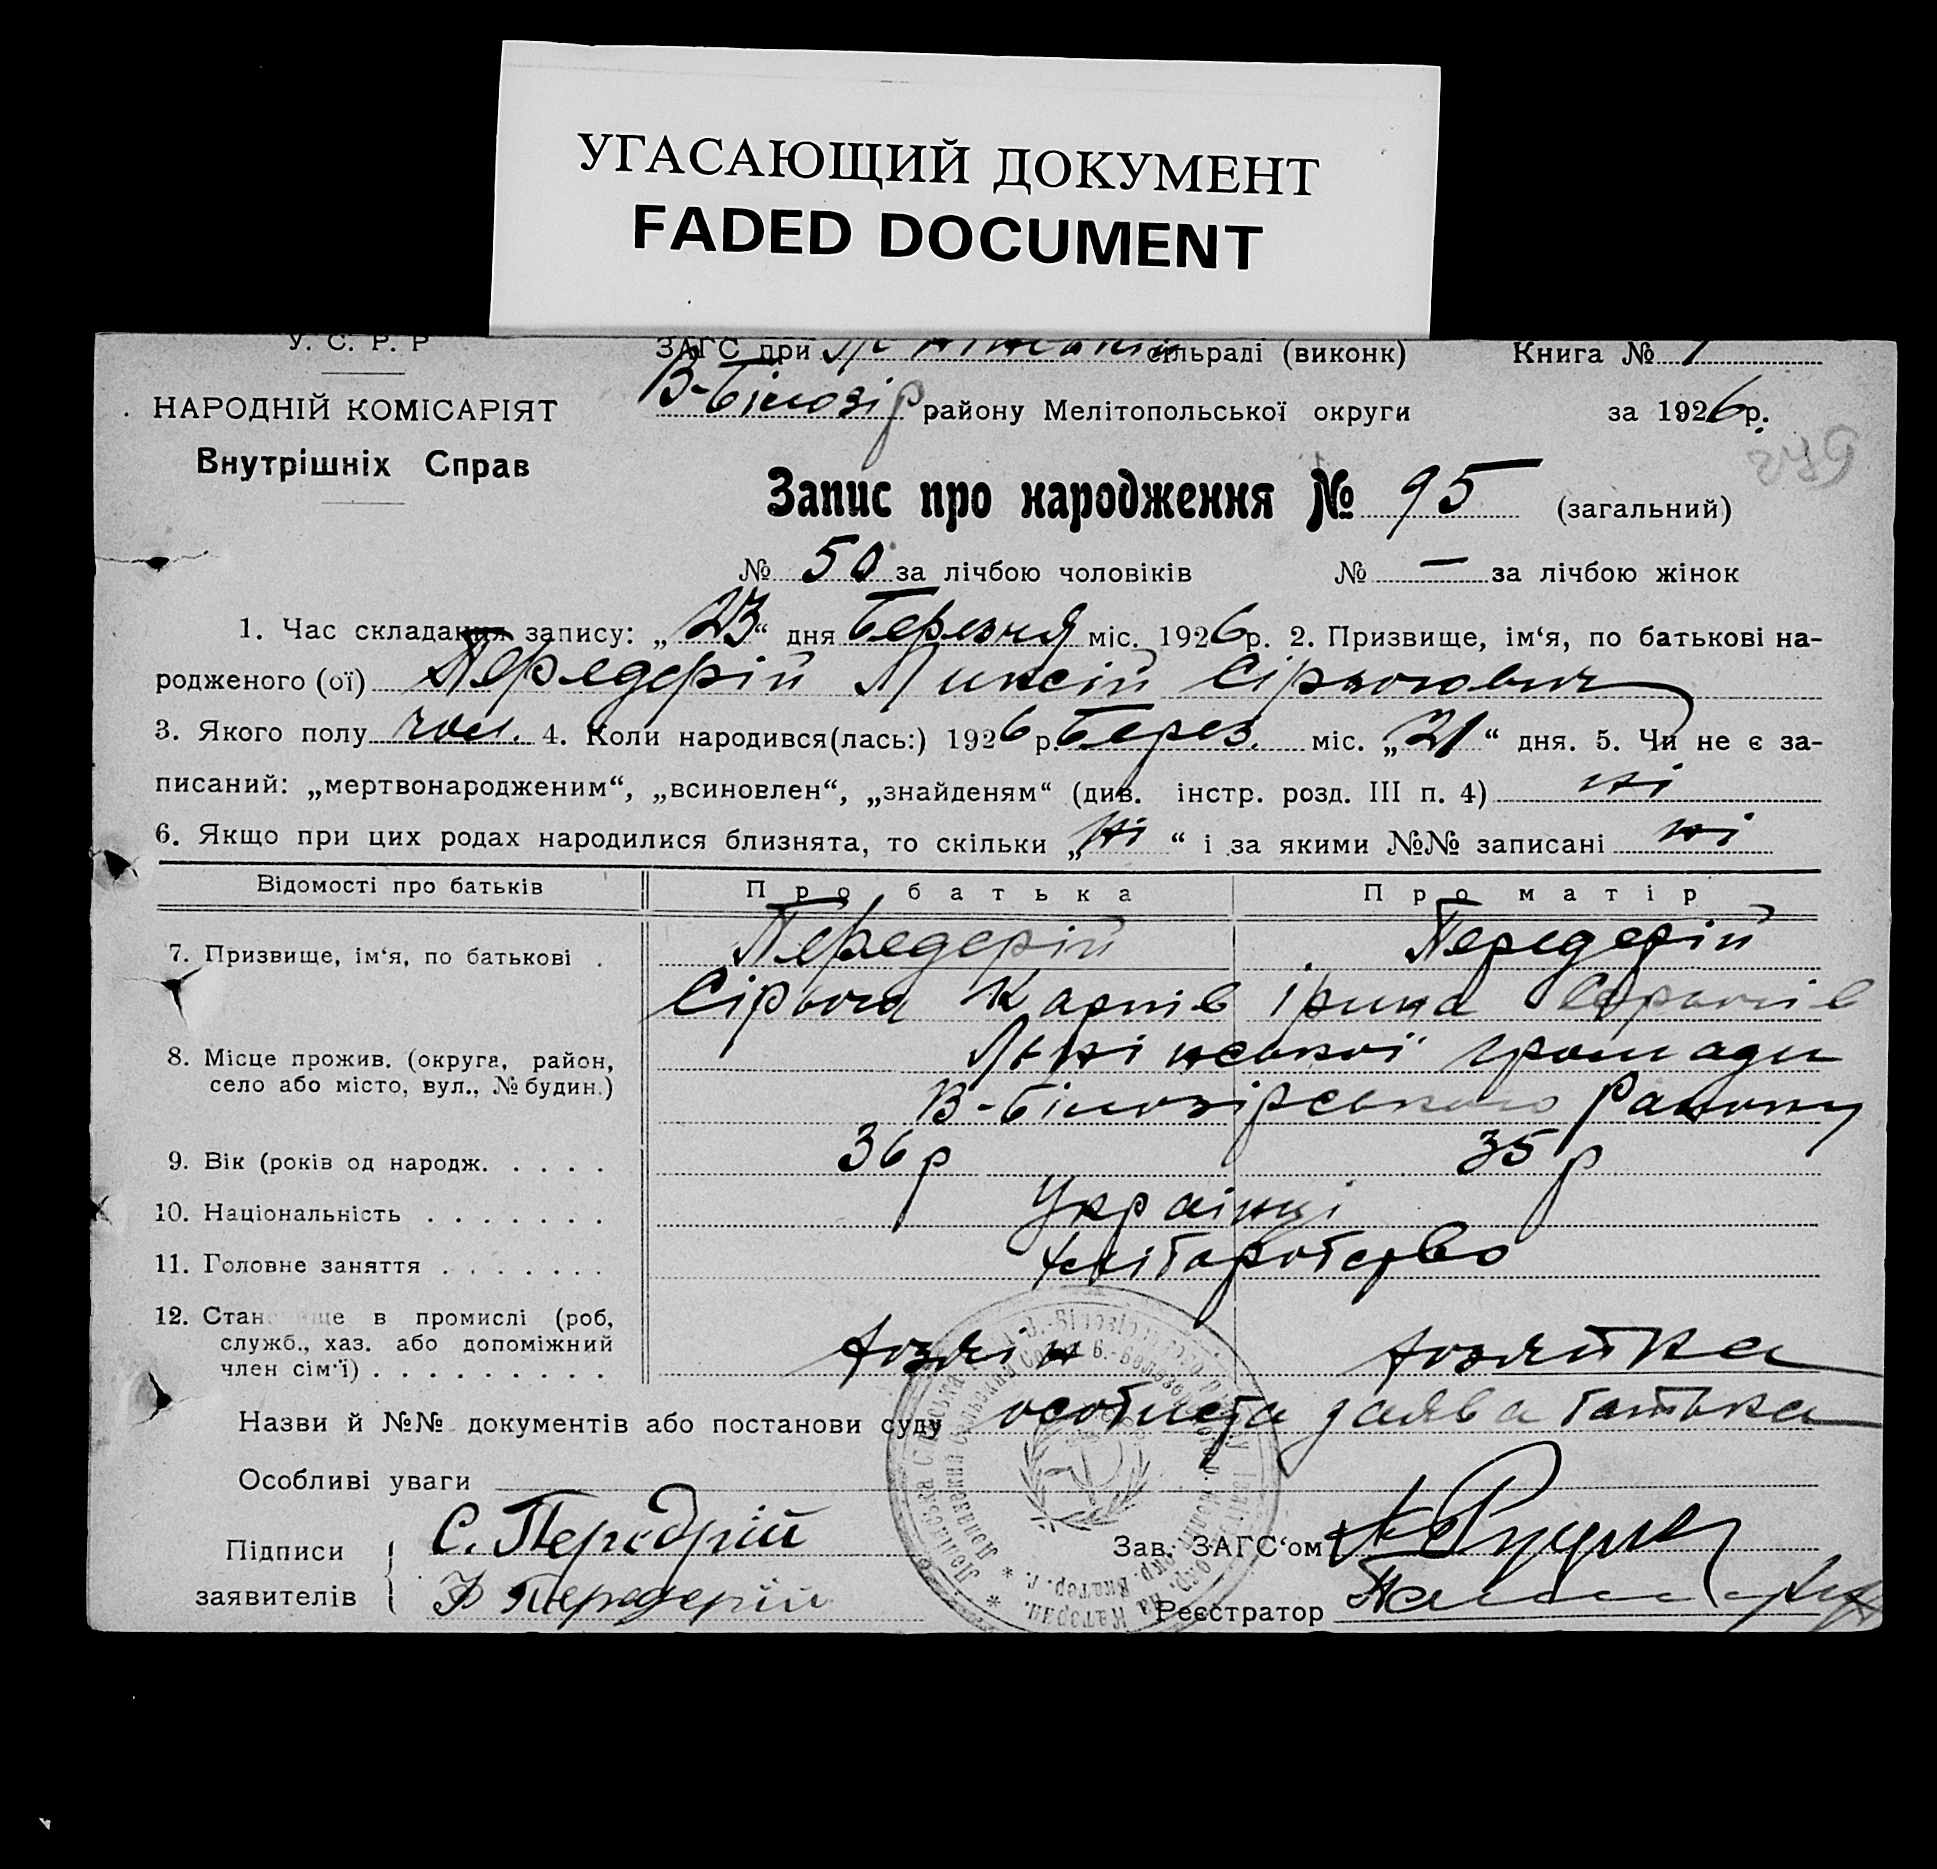 УГАСАЮЩИЙ ДОКУМЕНТ
FADED DOCUMENT
У. С. Р. Р
ЗАГС при сільраді (виконк) Книга № 1
НАРОДНІЙ КОМІСАРІЯТ
В-Білозір району Мелітопольської округи за 1926 р.
Внутрішніх Справ
Запис про народження № 95 (загальний)
№ 50 за лічбою чоловіків № — за лічбою жінок
1. Час складання запису: „23“ дня Березня міс. 1926 р. 2. Призвище, ім‘я, по батькові на-
родженого (ої) Передерій Ликсій Сірьогович
3. Якого полу чол. 4. Коли народився(лась:) 1926 р. Берез. міс. „21“ дня. 5. Чи не є за-
писаний: „мертвонародженим“, „всиновлен“, „знайденям“ (див. інстр. розд. III п. 4) ні
6. Якщо при цих родах народилися близнята, то скільки „ні“ і за якими №№ записані ні
Відомості про батьків Про батька Про матір
7. Призвище, ім‘я, по батькові . Передерій Передерій
Сірьога Карпів Ірина
8. Місце прожив. (округа, район, громади
село або місто, вул., № будин.) В-Білозірського Району
9. Вік (років од народж. . . . . 36 р 35 р
10. Національність . . . . . . . Українці
11. Головне заняття . . . . . . . хліборобство
12. Становище в промислі (роб,
служб., хаз. або допоміжний хозяін хозяйка
член сім‘ї) . . . . . . . . . .
Назви й №№ документів або постанови суду особиста заява батька
Особливі уваги
Підписи С. Передрій Зав. ЗАГС‘ом
заявителів Передерій Реєстратор